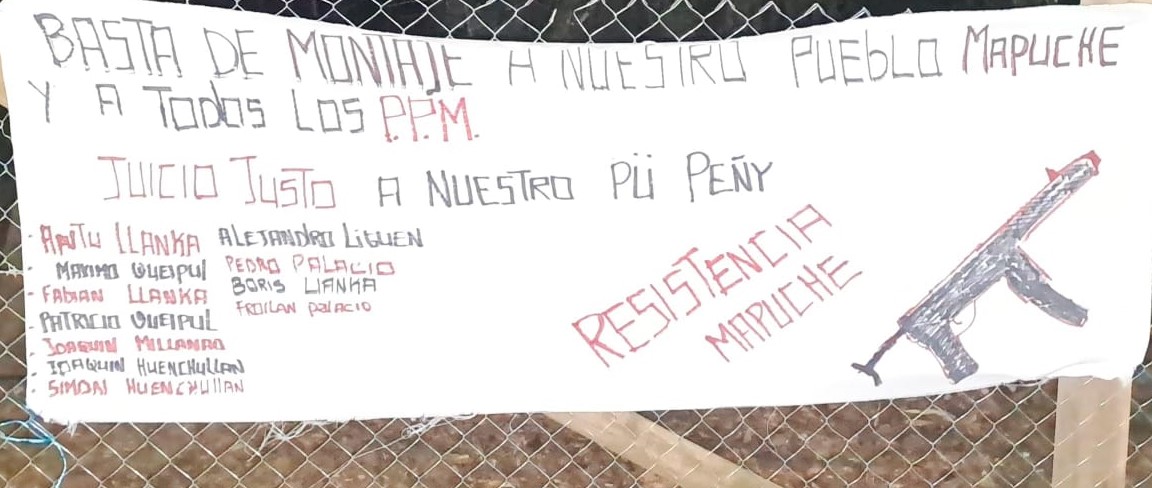 BASTA DE MONTAJE A NUESTRO PUEBLO MAPUCHE
Y A TODOS LOS P.P.M.
JUICIO JUSTO A NUESTRO PÜ PEÑY
- ANTU LLANKA
- MAXIMO QUEIPUL
- FABIAN LLANKA
- PATRICIO QUEIPUL
- JOAQUIN MILLANAO
- JOAQUIN HUENCHULLAN
- SIMON HUENCHULLAN
ALEJANDRO LIGUEN
PEDRO PALACIO
BORIS LLANKA
FROILAN PALACIO
RESISTENCIA
MAPUCHE